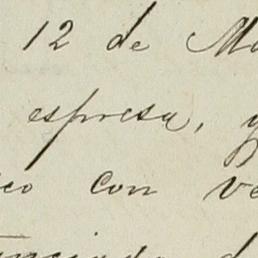 12 de Ma
espresa, y
co con ve